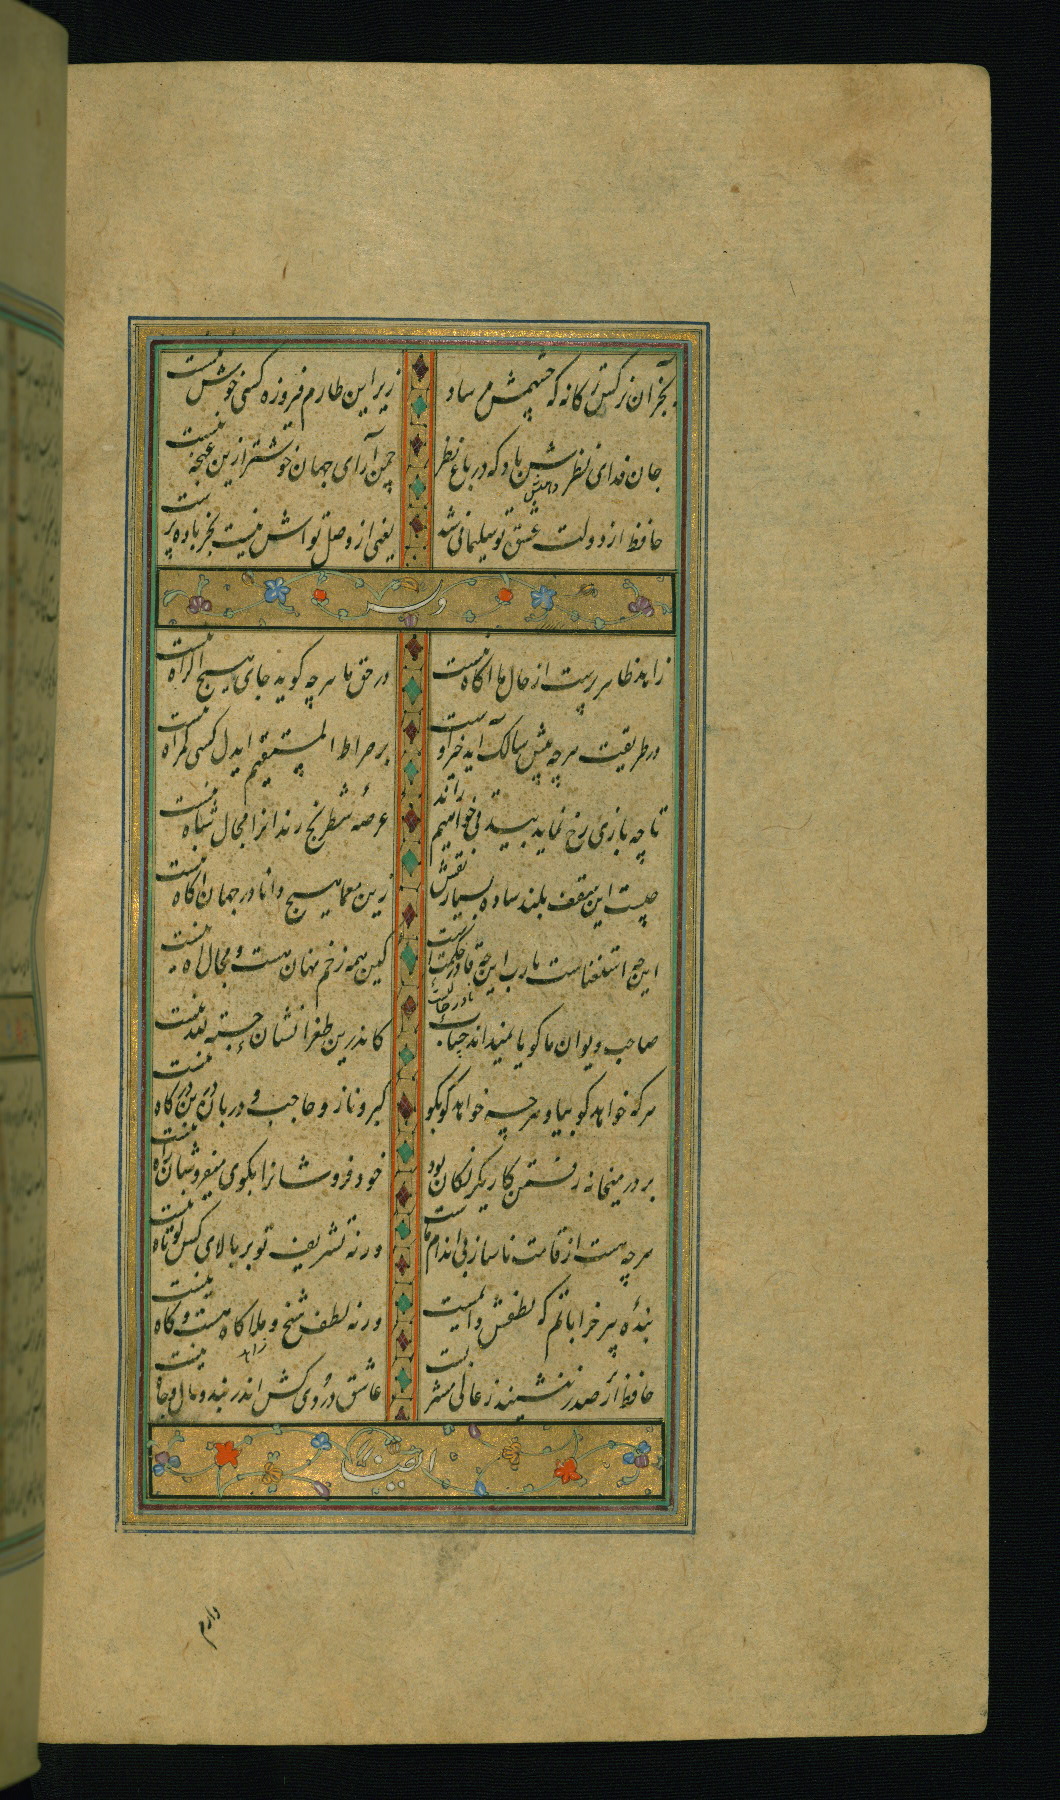 بجز آن نرکس مستانه که چشمش مرساد زیر این طارم فیروزه کسی خوش ننشست
جان فدای نظرش باد که در باغ نظر چمن آرای جهان خوشتر ازین غنچه نبست
دهنش
حافظ از دولت عشق تو سلیمانی شد یعنی از وصل تواش نیست بجز باد بدست
وله
زاهد ظاهر پرست از حال ما اکاه نیست در حق ما هرچه کوید جای هیچ اکراه نیست
در طریقت هرچه پیش سالک آید خیر اوست بر صراط المستقیم ایدل کسی کمراه نیست
تا چه بازی رخ نماید بیدقی خواهیم راند عرصهٔ شطرنج رندانرا مجال شاه نیست
چیست این سقف بلند ساده بسیار نقش زین معما هیچ دانا در جهان اکاه نیست
این چه استغناست یارب این چه قادر حکمتست کین همه زخم نهان هست و مجال آه نیست
صاحب دیوان ما کویا نمیداند حساب کاندرین طغرا نشان حسبة لله نیست
هرکه خواهد کو بیا و هرچه خواهد کو بکو کبر و ناز و حاجب و دربان درین درکاه نیست
بر در میخانه رفتن کار یکرنکان بود خود فروشانرا بکوی میفروشان راه نیست
هرچه هست از قامت ناساز بی اندام ماست ورنه تشریف تو بر بالای کس کوتاه نیست
بندهٔ پیر خراباتم که لطفش دائمست ورنه لطف شیخ و ملا کاه هست و کاه نیست
زاهد
حافظ ار صدر ننشیند ز عالی مشربیست عاشق دردی کش اندر بند و مال و جاه نیست
ایضا
دارم